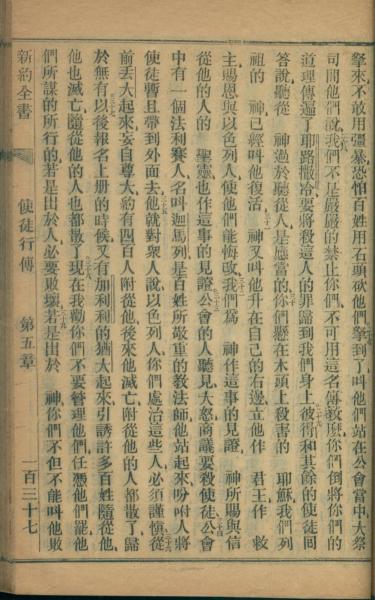 拏來不敢用彊暴恐怕百姓用石頭砍他們拏到了叫他們站在公會當中大祭
司問他們說我們不是嚴嚴的禁止你們不可用這名傳教麼你們倒將你們的
道理傳遍了耶路撒冷要將殺這人的罪歸到我們身上彼得和其餘的使徒回
答說聽從 神過於聽從人是應當的你們懸在木頭上殺害的 耶穌我們列
祖的 神已經叫他復活 神又叫他升在自己的右邊立他作 君王作 救
主賜恩與以色列人使他們能悔改我們為 神作這事的見證 神所賜與信
從他的人的 聖靈也作這事的見證公會的人聽見大怒商議要殺使徒公會
中有一個法利賽人名叫迦馬列是百姓所敬重的教法師他站起來吩咐人將
使徒暫且帶到外面去他就對眾人說以色列人你們處治這些人必須謹慎從
前丟大起來妄自尊大約有四百人附從他後來他滅亡附從他的人都散了歸
於無有以後報名上冊的時候又有加利利的猶大起來引誘許多百姓隨從他
他也滅亡隨從他的人也都散了現在我勸你們不要管理他們任憑他們罷他
們所謀的所行的若是出於人必要敗壞若是出於 神你們不但不能叫他敗
新約全書 使徒行傳 第五章 一百三十七